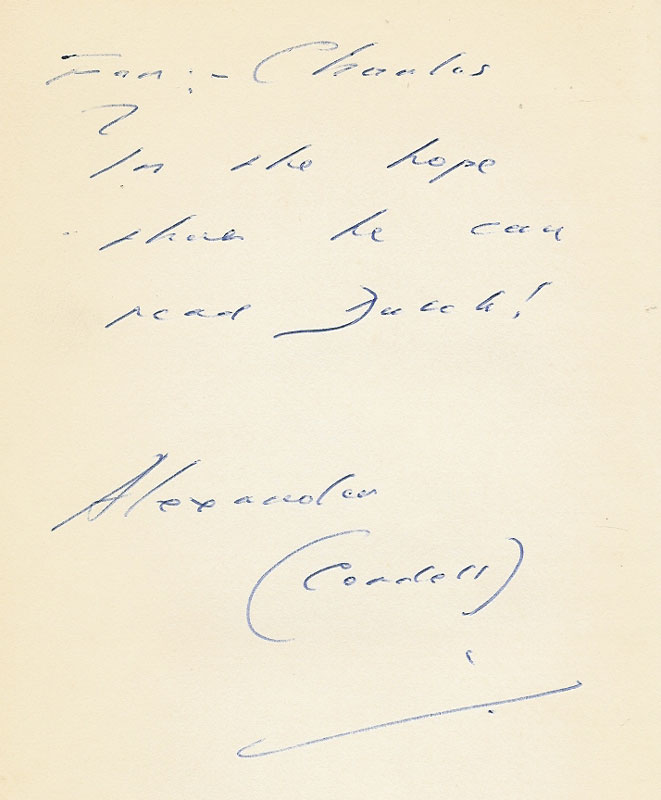 For:- Charles
In the hope
that he can
read Dutch!
Alexander
(Cordell)